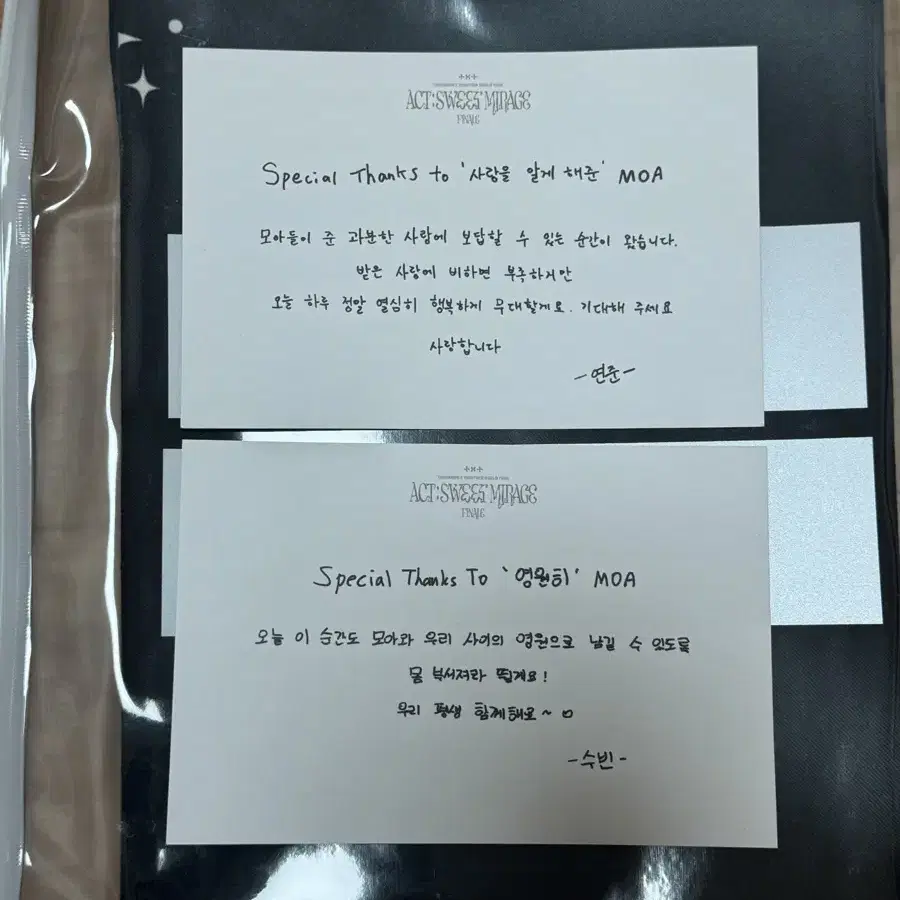 ACT : SWEET MIRAGE
FINALE
Special Thanks to '사랑을 알게 해준' MOA
모아들이 준 과분한 사랑에 보답할 수 있는 순간이 왔습니다.
받은 사랑에 비하면 부족하지만
오늘 하루 정말 열심히 행복하게 무대할게요. 기대해 주세요
사랑합니다
-연준-
ACT : SWEET MIRAGE
FINALE
Special Thanks To '영원히' MOA
오늘 이 순간도 모아와 우리 사이의 영원으로 남길 수 있도록
몸 부서져라 뛸게요!
우리 평생 함께해요~ ㅁ
-수빈-